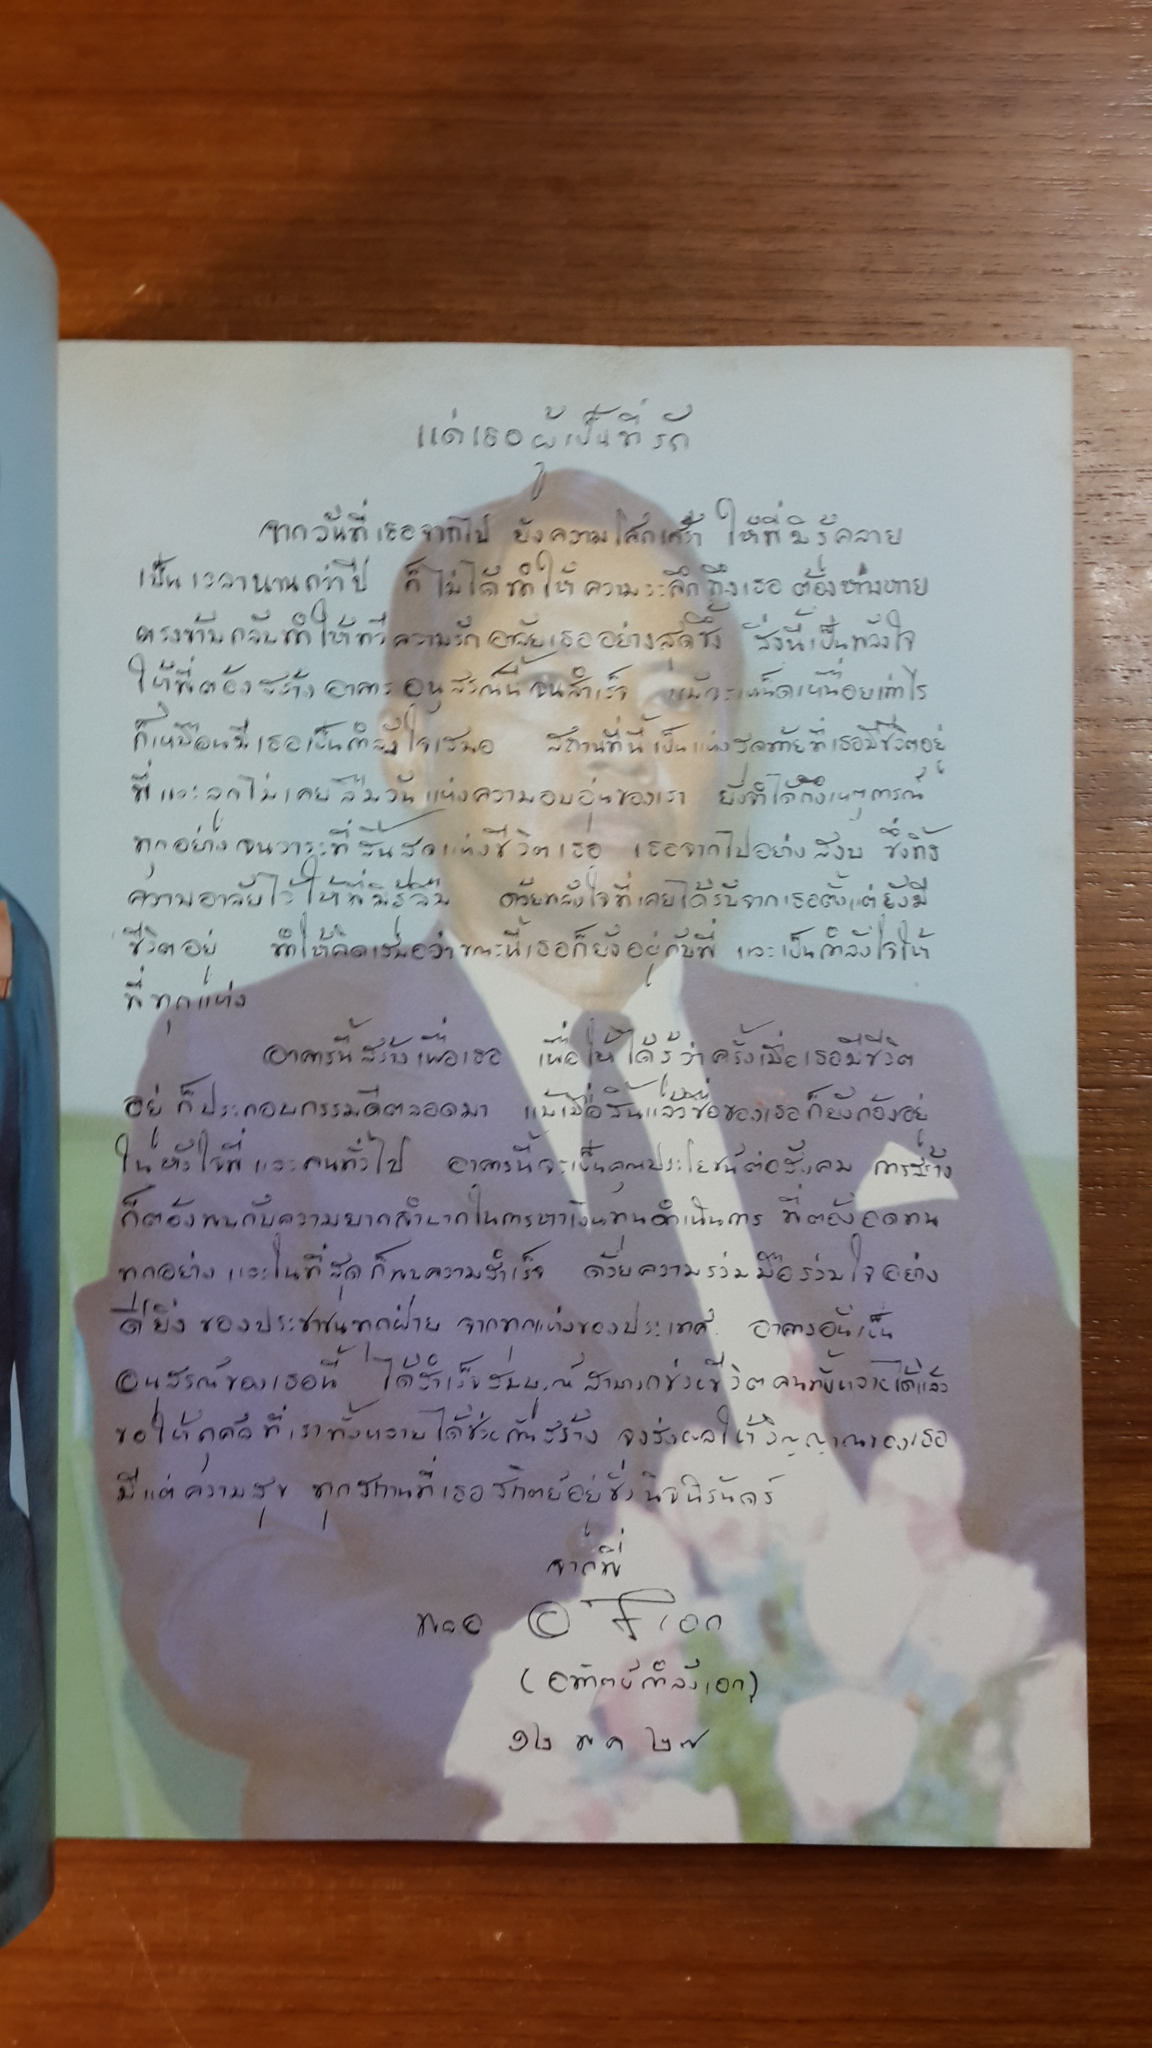 แด่เธอผู้เป็นที่รัก
จากวันที่เธอจากไป ยังความโศกเศร้า ให้พี่มิรู้คลาย
เป็นเวลานานกว่าปี ก็ไม่ได้ทำให้ความระลึกถึงเธอต้องห่างหาย
ตรงข้ามกลับทำให้ทวีความรักอาลัยเธออย่างสุดซึ้ง สิ่งนี้เป็นพลังใจ
ให้พี่ต้องสร้างอาคารอนุสรณ์นี้จนสำเร็จ แม้จะเหน็ดเหนื่อยเท่าไร
ก็เหมือนมีเธอเป็นกำลังใจเสมอ สถานที่นี้เป็นแห่งสุดท้ายที่เธอมีชีวิตอยู่
พี่และลูกไม่เคยลืมวันแห่งความอบอุ่นของเรา ยังจำได้ถึงเหตุการณ์
ทุกอย่างจนวาระที่สิ้นสุดแห่งชีวิตเธอ เธอจากไปอย่างสงบ ซึ่งทิ้ง
ความอาลัยไว้ให้พี่มิรู้ลืม ด้วยพลังใจที่เคยได้รับจากเธอตั้งแต่ยังมี
ชีวิตอยู่ ทำให้คิดเสมอว่าขณะนี้เธอก็ยังอยู่กับพี่ และเป็นกำลังใจให้
พี่ทุกแห่ง
อาคารนี้สร้างเพื่อเธอ เพื่อให้ได้รู้ว่าครั้งเมื่อเธอมีชีวิต
อยู่ก็ประกอบกรรมดีตลอดมา แม้เมื่อสิ้นแล้วชื่อของเธอก็ยังก้องอยู่
ในหัวใจพี่และคนทั่วไป อาคารนี้จะเป็นคุณประโยชน์ต่อสังคม การสร้าง
ก็ต้องพบกับความยากลำบากในการหาเงินทุนดำเนินการ พี่ต้องอดทน
ทุกอย่าง และในที่สุดก็พบความสำเร็จ ด้วยความร่วมมือร่วมใจอย่าง
ดียิ่ง ของประชาชนทุกฝ่าย จากทุกแห่งของประเทศ อาคารอันเป็น
อนุสรณ์ของเธอนี้ ได้สำเร็จสมบูรณ์สามารถช่วยชีวิตคนทั้งหลายได้แล้ว
ขอให้กุศลที่เราทั้งหลายได้ช่วยกันสร้าง จงส่งผลให้วิญญาณของเธอ
มีแต่ความสุข ทุกสถานที่เธอสถิตย์อยู่ชั่วนิจนิรันดร์
จากพี่
พลอ
(อาทิตย์ กำลังเอก)
๑๒ พ ค ๒๗